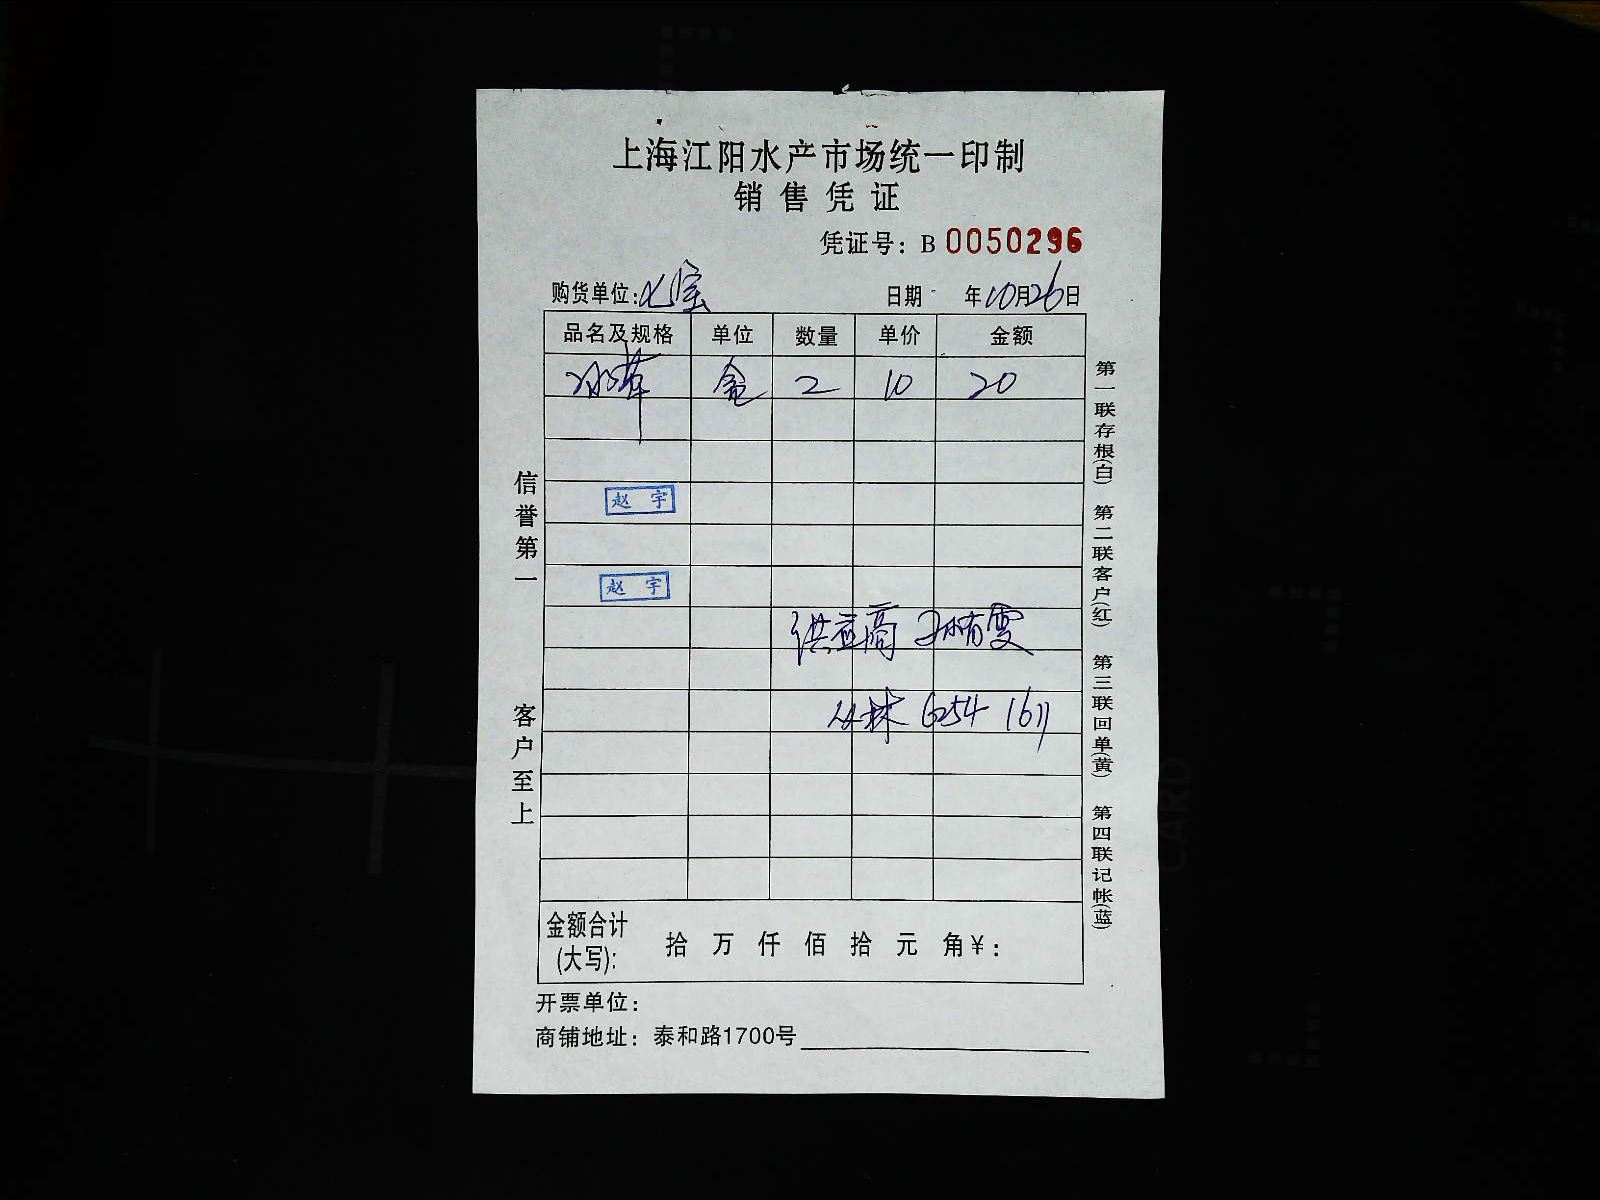 上海江阳水产市场统一印制
销售凭证
凭证号：B 0050296
购货单位：七宝
日期 年10月26日
品名及规格 单位 数量 单价 金额
冰草 盒 2 10 20
赵宇
赵宇
供应商 孙有雯
丛林 6254 1611
金额合计(大写): 拾 万 仟 佰 拾 元 角 ¥：
开票单位：
商铺地址：泰和路1700号
信誉第一
客户至上
第一联存根(白) 第二联客户(红) 第三联回单(黄) 第四联记帐(蓝)
CARD